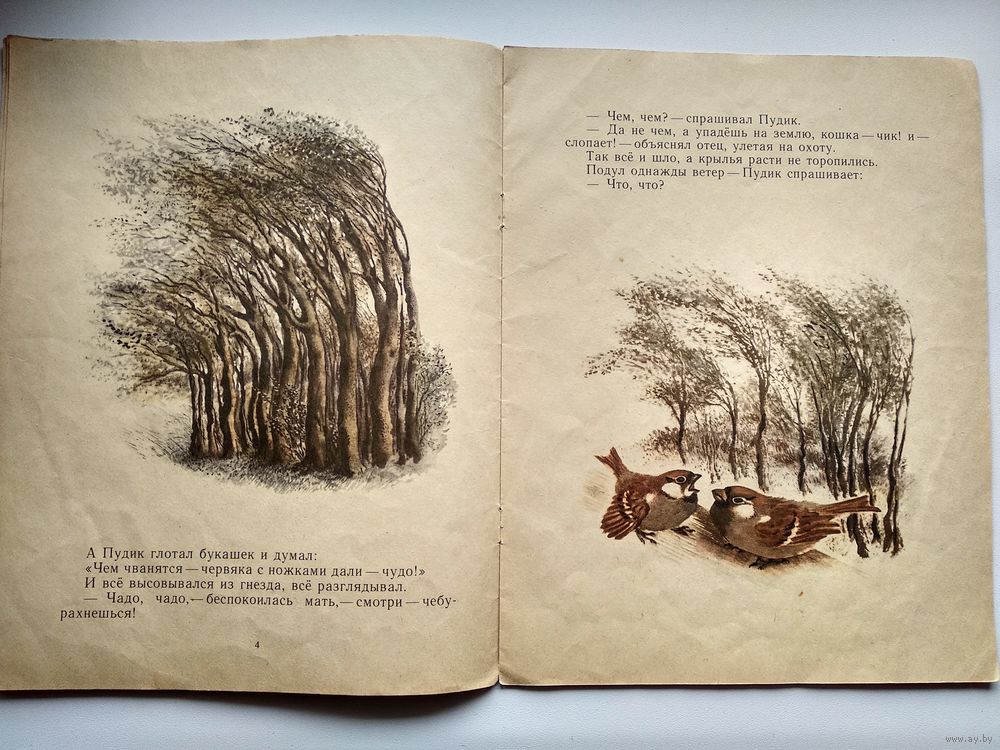 А Пудик глотал букашек и думал:
«Чем чванятся — червяка с ножками дали — чудо!»
И всё высовывался из гнезда, всё разглядывал.
— Чадо, чадо,— беспокоилась мать,— смотри — чебу-
рахнешься!
4
— Чем, чем? — спрашивал Пудик.
— Да не чем, а упадёшь на землю, кошка — чик! и —
слопает! — объяснял отец, улетая на охоту.
Так всё и шло, а крылья расти не торопились.
Подул однажды ветер — Пудик спрашивает:
— Что, что?
www.ay.by